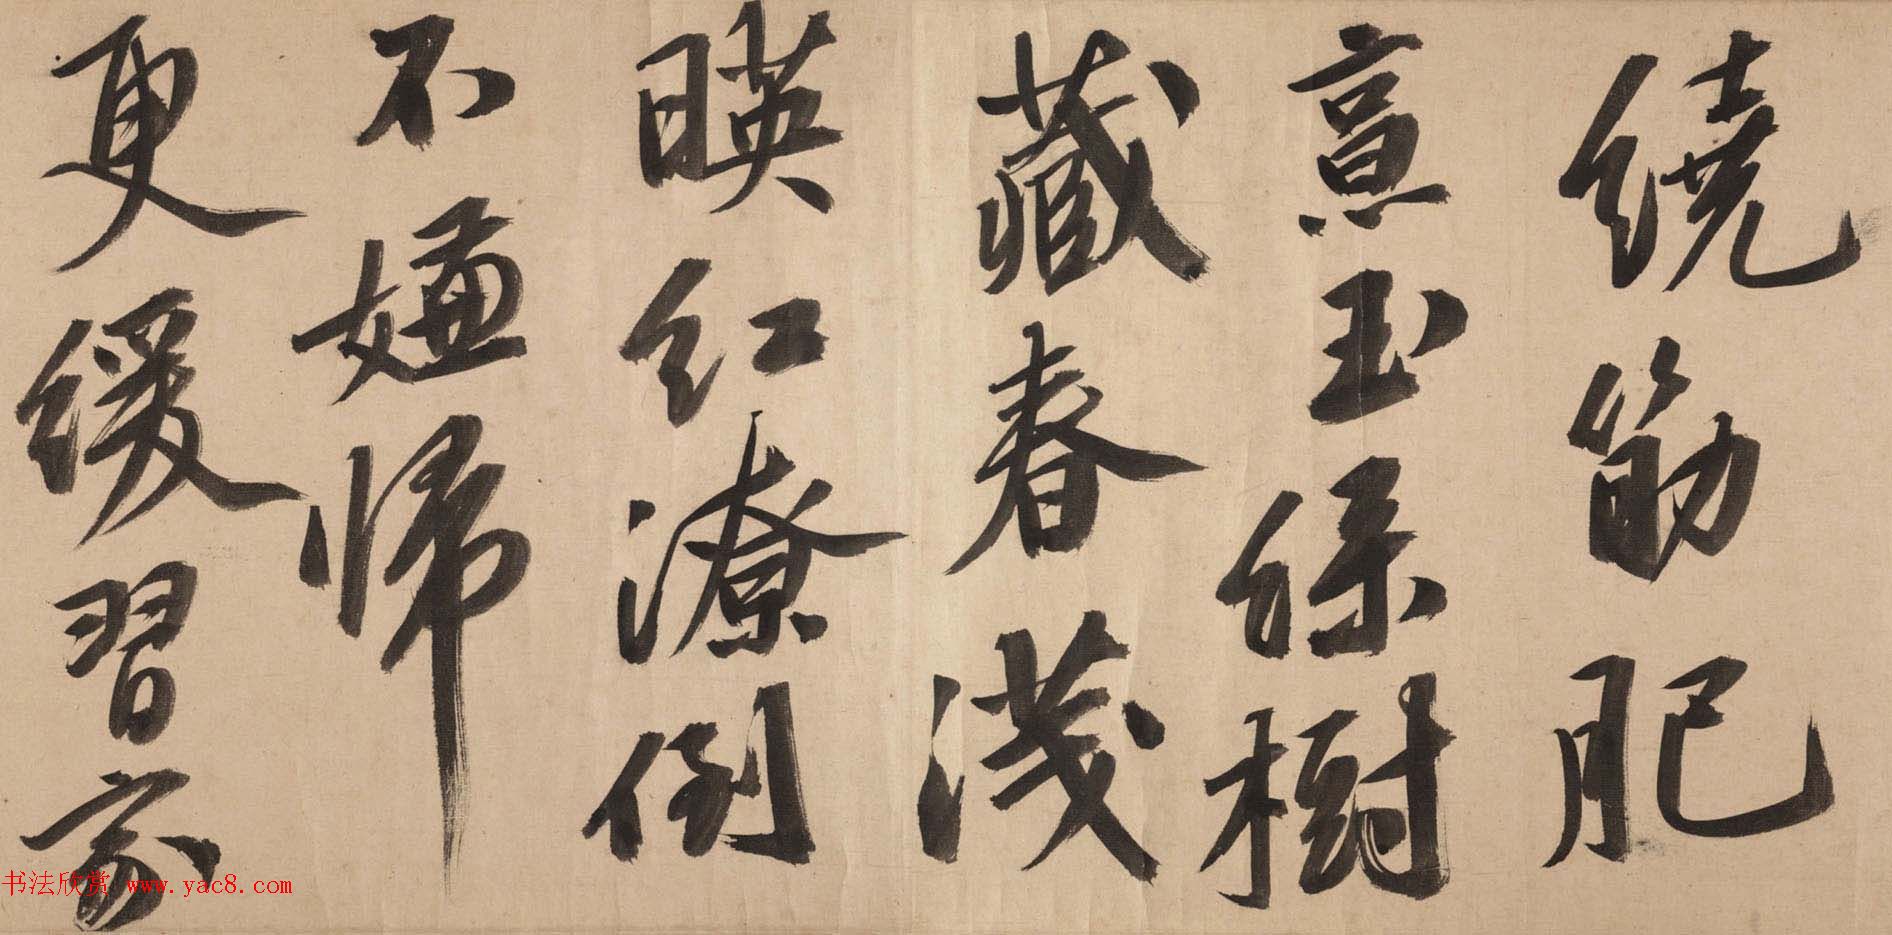 繞筋肥
意玉緑樹
藏春淺
暎紅潦倒
不嫌帰
更緩習家
书法欣赏 www.yac8.com